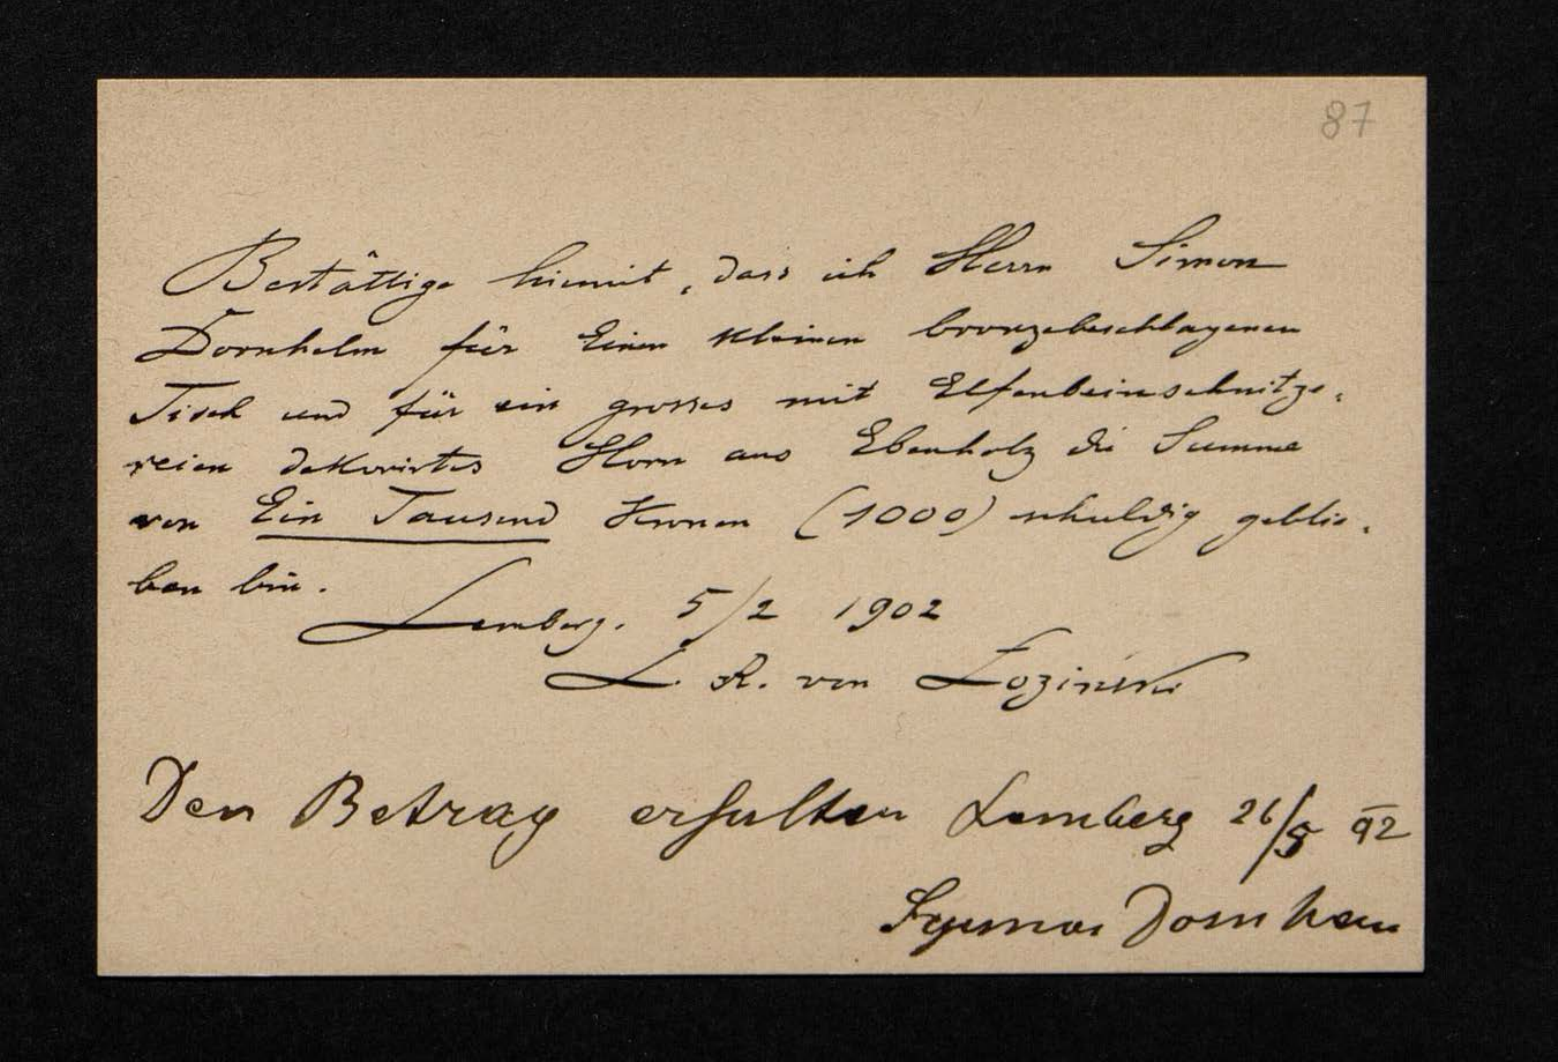 87
Bestättige hiemit, dass ich Herrn Simon
Dornhelm für Einen kleinen bronzebeschlagenen
Tisch und für ein grosses mit Elfenbeinschnitze-
reien dekorirtes Horn aus Ebenholz die Summe
von Ein Tausend Kronen (1000) schuldig geblie-
ben bin.
Lemberg. 5/2 1902
L. R. von Łoziński
Den Betrag erhalten Lemberg 26/
Dornhelm